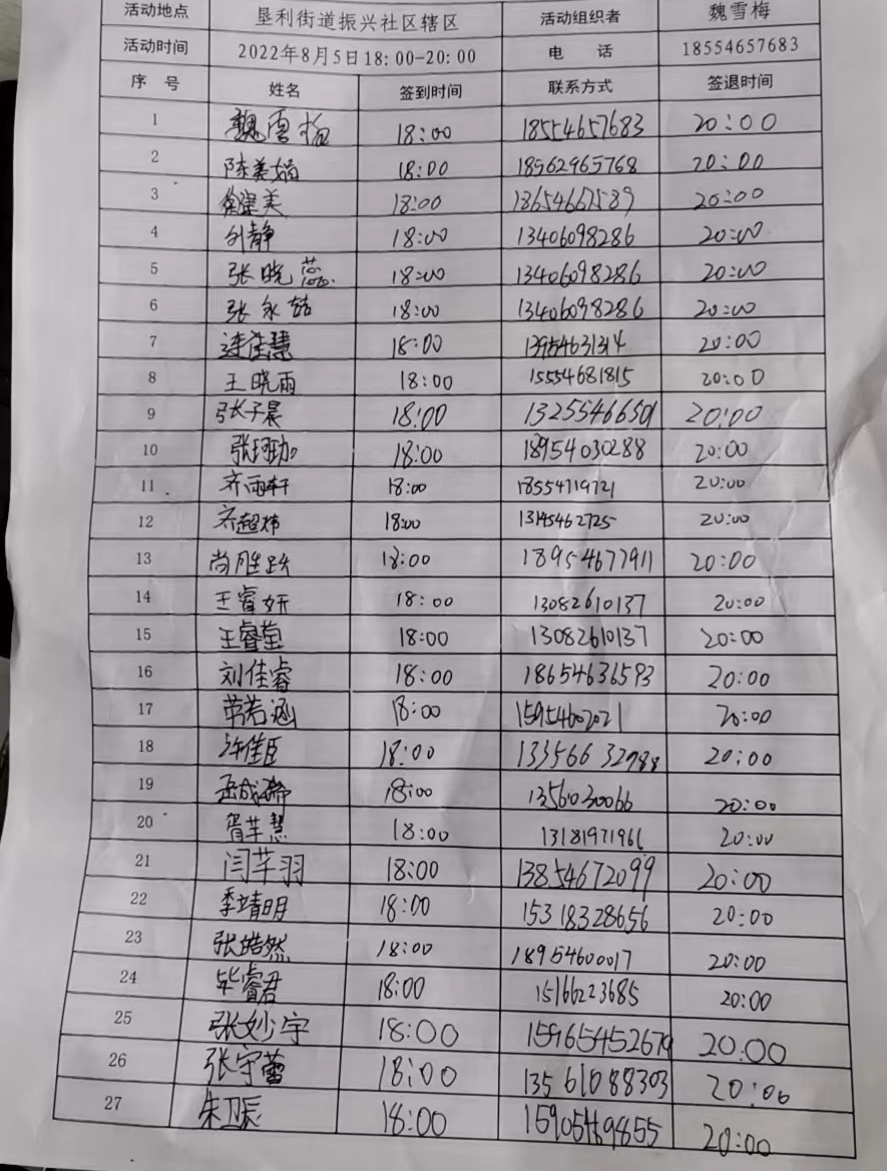 活动地点 垦利街道振兴社区辖区 活动组织者 魏雪梅
活动时间 2022年8月5日18:00-20:00 电 话 18554657683
序 号 姓名 签到时间 联系方式 签退时间
1 魏雪梅 18:00 18554657683 20:00
2 陈美娟 18:00 18962965768 20:00
3 美 18:00 20:00
4 刘静 18:00 13406098286 20:00
5 张晓蕊 18:00 13406098286 20:00
6 张永喆 18:00 13406098286 20:00
7 连佳慧 18:00 13954631314 20:00
8 王晓雨 18:00 15554681815 20:00
9 张子晨 18:00 13255466501 20:00
10 18:00 18954030288 20:00
11 齐雨轩 18:00 18554719721 20:00
12 齐超炜 18:00 20:00
13 尚胜跃 18:00 18954677911 20:00
14 王睿妍 18:00 13082610137 20:00
15 王睿莹 18:00 13082610137 20:00
16 刘佳睿 18:00 18654636593 20:00
17 若涵 18:00 15954602021 20:00
18 许佳臣 18:00 20:00
19 18:00 13561030066 20:00
20 胥芊慧 18:00 13181971966 20:00
21 闫芊羽 18:00 13854672099 20:00
22 季靖明 18:00 15318328656 20:00
23 张皓然 18:00 18954600017 20:00
24 毕睿君 18:00 15166223685 20:00
25 张妙宇 18:00 159654452679 20:00
26 张宇蕾 18:00 13561088303 20:00
27 朱卫辰 18:00 20:00